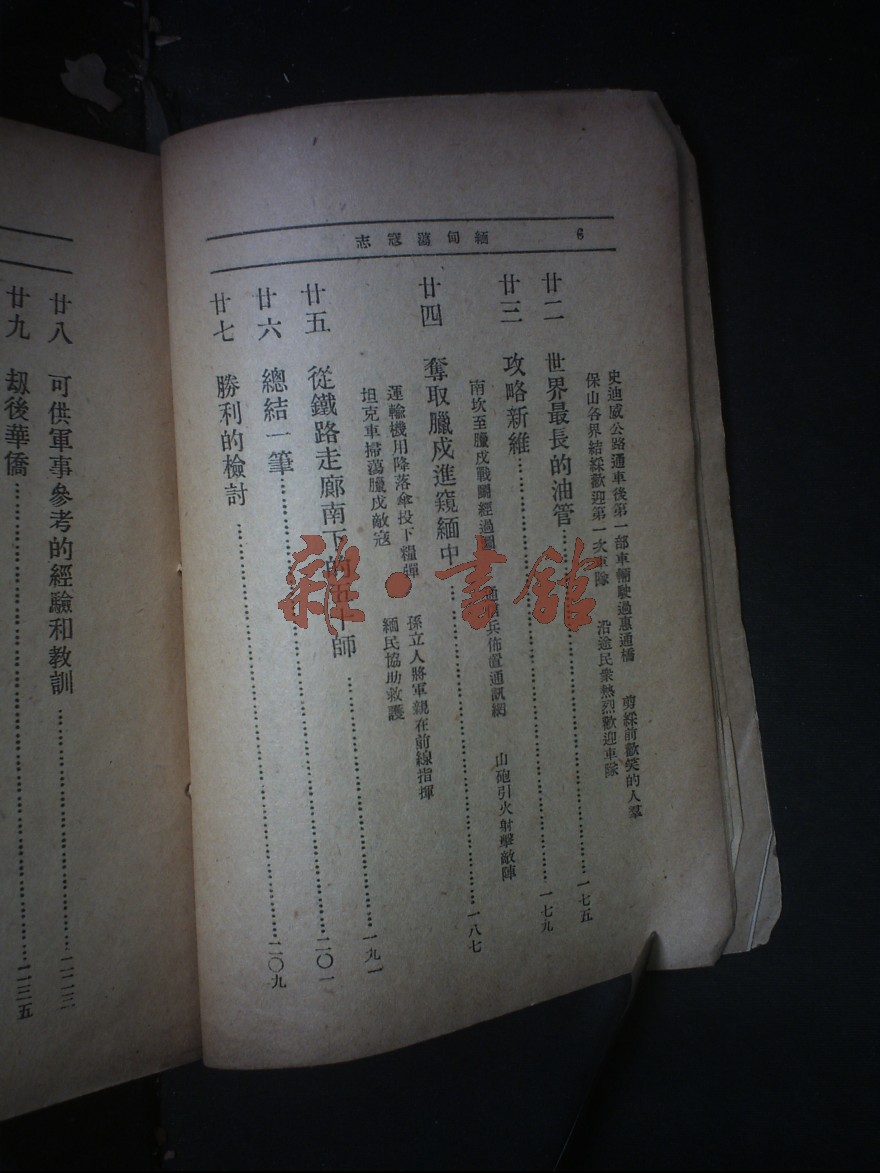 6 緬甸蕩寇志
史迪威公路通車後第一部車輛駛過惠通橋 剪綵前歡笑的人羣
保山各界結綵歡迎第一次車隊 沿途民衆熱烈歡迎車隊
廿二 世界最長的油管……一七五
廿三 攻略新維……一七九
南坎至臘戍戰鬭經過圖 通信兵佈置通訊網 山砲引火射擊敵陣
廿四 奪取臘戍進窺緬中……一八七
運輸機用降落傘投下糧彈 孫立人將軍親在前線指揮
坦克車掃蕩臘戍敵寇 緬民協助救護
廿五 從鐵路走廊南下的五十師……一九一
廿六 總結一筆……二〇一
廿七 勝利的檢討……二〇九
廿八 可供軍事參考的經驗和教訓……二二三
廿九 劫後華僑……二三五
雜·書館